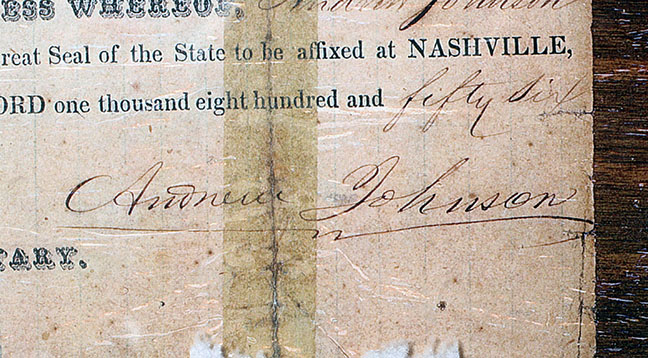 ESS WHEREOF, Andrew Johnson
reat Seal of the State to be affixed at NASHVILLE,
ORD one thousand eight hundred and fifty six
Andrew Johnson
TARY.